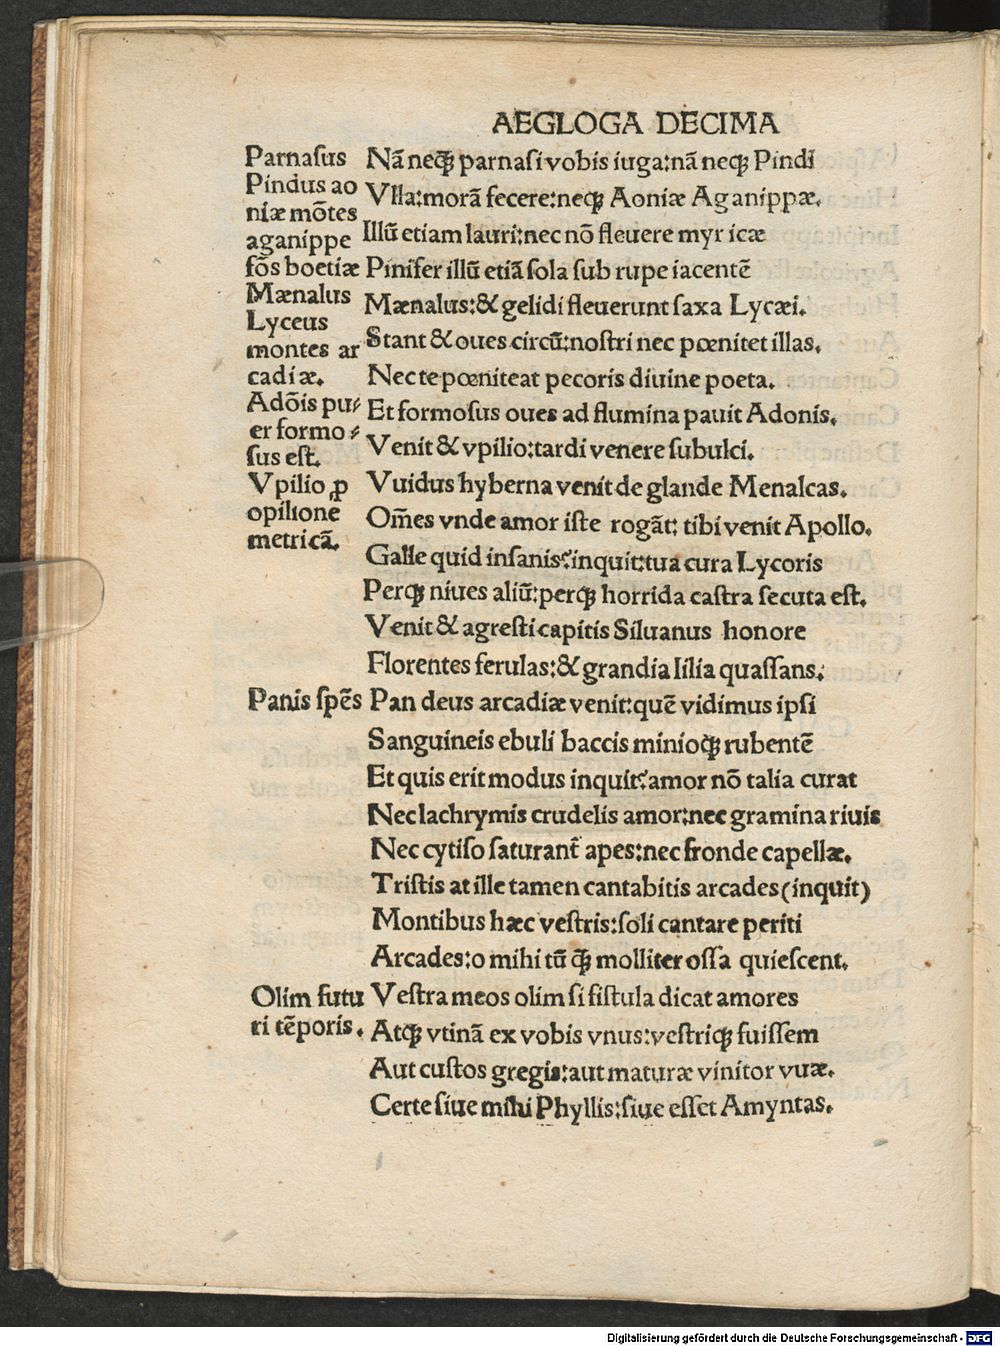 AEGLOGA DECIMA
Parnasus
Pindus ao
niæ mõtes
aganippe
fõs boetiæ
Mænalus
Lyceus
montes ar
cadiæ.
Adõis pu⸗
er formo⸗
sus est.
Vpilio ꝓ
opilione
metricã.
Nã neqꝫ parnasi vobis iuga:nã neqꝫ Pindi
Vlla:morã fecere:neqꝫ Aoniæ Aganippæ.
Illũ etiam lauri:nec nõ fleuere myricæ
Pinifer illũ etiã sola sub rupe iacentẽ
Mænalus:& gelidi fleuerunt saxa Lycæi.
Stant & oues circũ:nostri nec pœnitet illas.
Nec te pœniteat pecoris diuine poeta.
Et formosus oues ad flumina pauit Adonis.
Venit & vpilio:tardi venere subulci.
Vuidus hyberna venit de glande Menalcas.
Om̃es vnde amor iste rogãt: tibi venit Apollo.
Galle quid insanis?inquit:tua cura Lycoris
Perqꝫ niues aliũ:perqꝫ horrida castra secuta est.
Venit & agresti capitis Siluanus honore
Florentes ferulas:& grandia lilia quassans.
Panis spẽs
Pan deus arcadiæ venit:quẽ vidimus ipsi
Sanguineis ebuli baccis minioqꝫ rubentẽ
Et quis erit modus inquit?amor nõ talia curat
Nec lachrymis crudelis amor:nec gramina riuis
Nec cytiso saturant̃ apes:nec fronde capellæ.
Tristis at ille tamen cantabitis arcades(inquit)
Montibus hæc vestris:soli cantare periti
Arcades:o mihi tũ qꝫ molliter ossa quiescent.
Olim futu
ri tẽporis.
Vestra meos olim si fistula dicat amores
Atqꝫ vtinã ex vobis vnus:vestriqꝫ fuissem
Aut custos gregis:aut maturæ vinitor vuæ.
Certe siue mihi Phyllis:siue esset Amyntas.
Digitalisierung gefördert durch die Deutsche Forschungsgemeinschaft - DFG